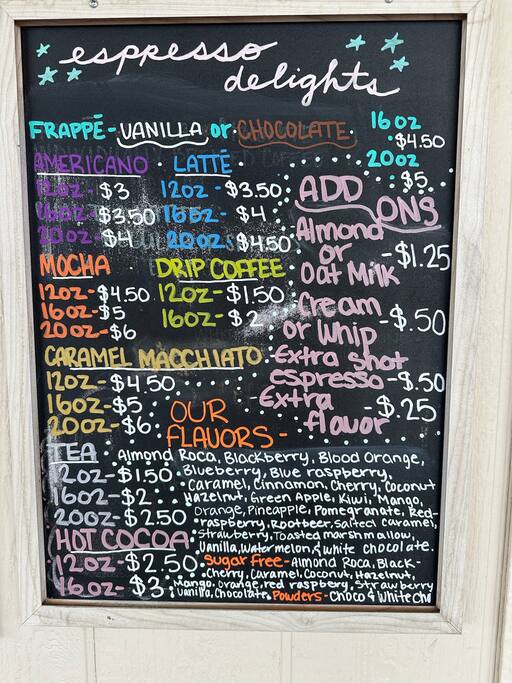 espresso
delights
FRAPPÉ - VANILLA or CHOCOLATE
16oz
$4.50
20oz
$5
AMERICANO
12oz - $3
16oz - $3.50
20oz - $4
LATTÉ
12oz - $3.50
16oz - $4
20oz $4.50
ADD
ONS
Almond
or
Oat Milk
- $1.25
Cream
or Whip
- $.50
Extra Shot
espresso - $.50
Extra
flavor
- $.25
MOCHA
12oz - $4.50
16oz - $5
20oz - $6
DRIP COFFEE
12oz - $1.50
16oz - $2
CARAMEL MACCHIATO
12oz - $4.50
16oz - $5
20oz - $6
TEA
12oz - $1.50
16oz - $2
20oz - $2.50
HOT COCOA
12oz - $2.50
16oz - $3
OUR
FLAVORS -
Almond Roca, Blackberry, Blood Orange,
Blueberry, Blue raspberry,
Caramel, Cinnamon, Cherry, Coconut
Hazelnut, Green Apple, Kiwi, Mango,
Orange, Pineapple, Pomegranate, Red-
raspberry, Rootbeer, Salted Caramel,
Strawberry, Toasted marshmallow,
Vanilla, Watermelon, & white chocolate.
Sugar Free - Almond Roca, Black-
Cherry, Caramel, Coconut, Hazelnut,
Mango, Orange, red raspbery, Strawberry
Vanilla, Chocolate. Powders - Choco & White Cho